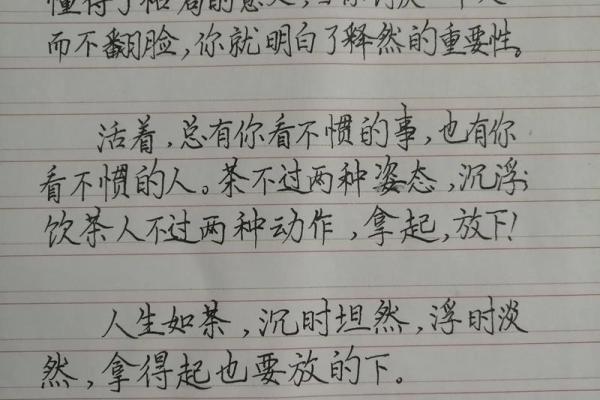 懂得了格局的意义,当你讨厌一个人
而不翻脸,你就明白了释然的重要性。
活着,总有你看不惯的事,也有你
看不惯的人。茶不过两种姿态,沉浮;
饮茶人不过两种动作,拿起,放下!
人生如茶,沉时坦然,浮时淡
然,拿得起也要放的下。